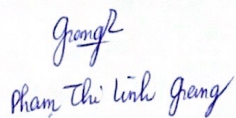 Giang
Phạm Thị Linh Giang